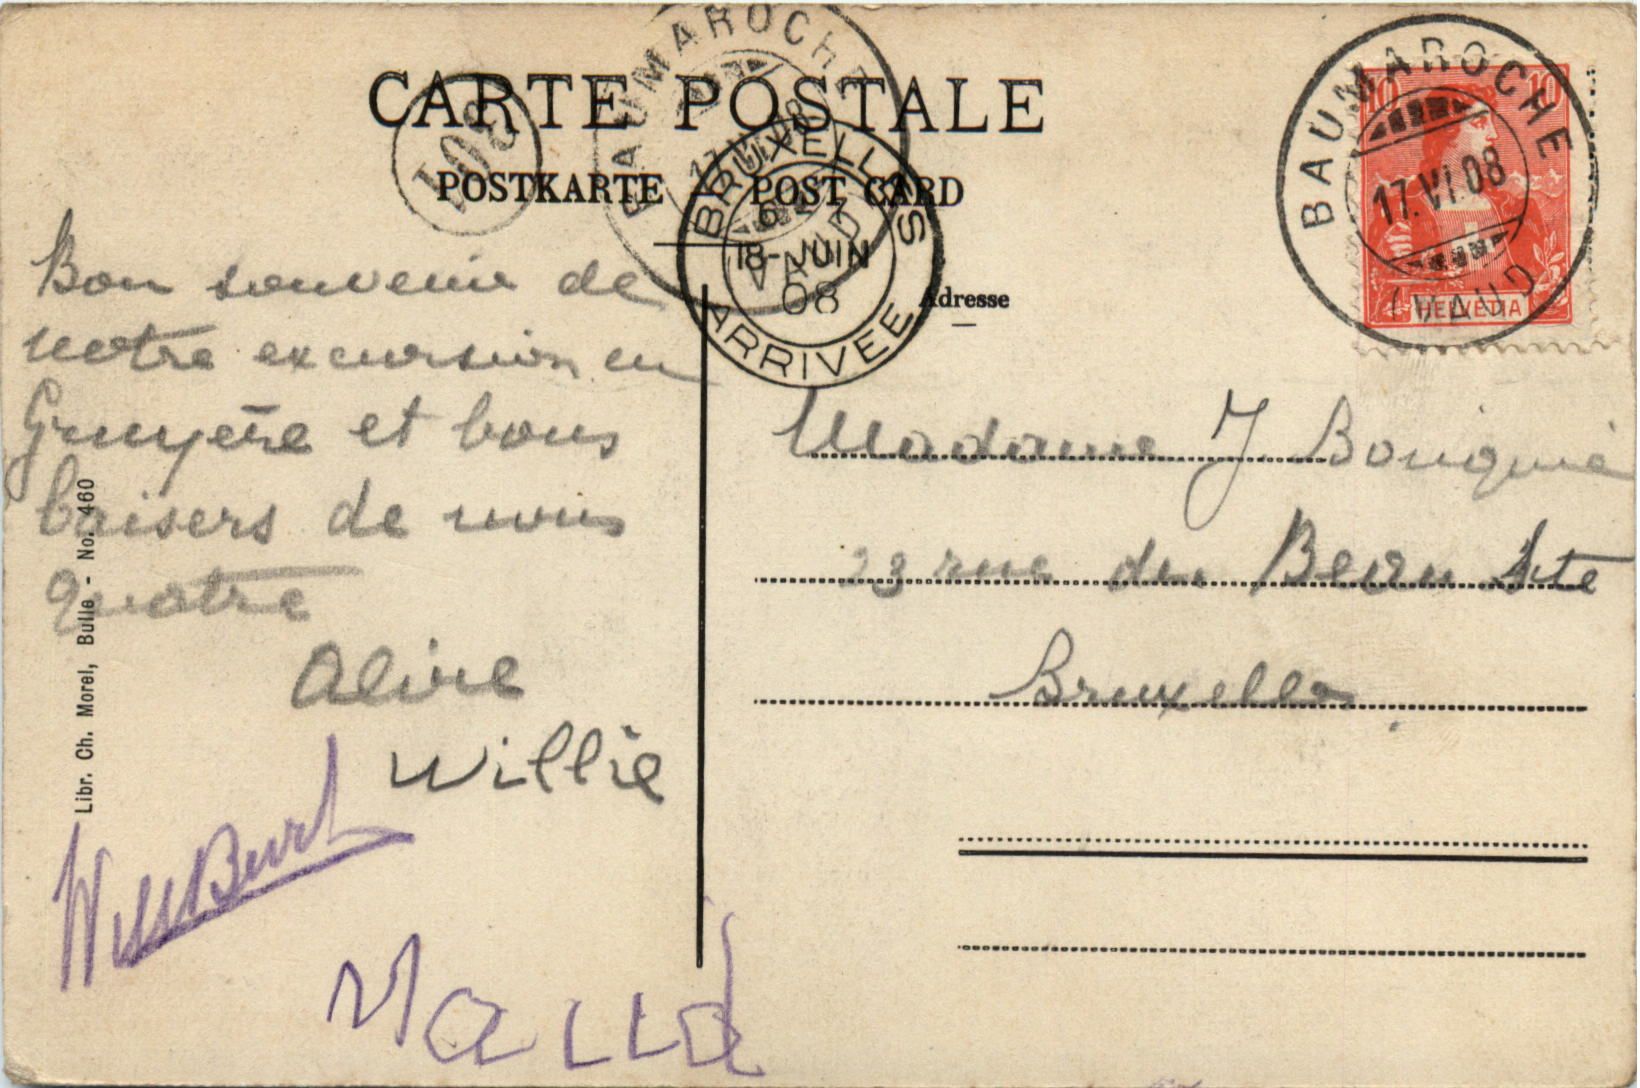 CARTE POSTALE
POSTKARTE — POST CARD
Adresse
BAUMAROCHE
17.VI.08
(VAUD)
10 10
HELVETIA
BAUMAROCHE
17.VI.08
VAUD
BRUXELLES
18-JUIN
08
ARRIVEE
108
Bon souvenir de
notre excursion en
Gruyère et bons
baisers de nous
quatre
Aline
Willie
Will Burt
Maud
Madame J. Bouquié
23 rue du Beau Site
Bruxelles
Libr. Ch. Morel, Bulle - No. 460